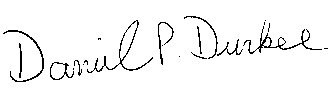 Daniel P. Durkee